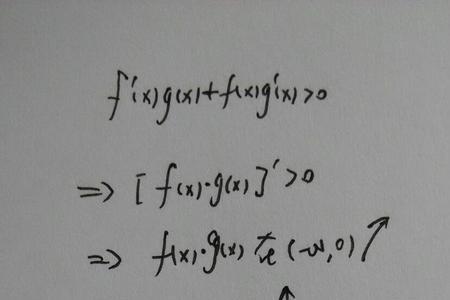 f'(x)g(x)+f(x)g'(x)>0
⇒ [f(x)·g(x)]'>0
⇒ f(x)·g(x) 在 (-∞,0)↗
↑